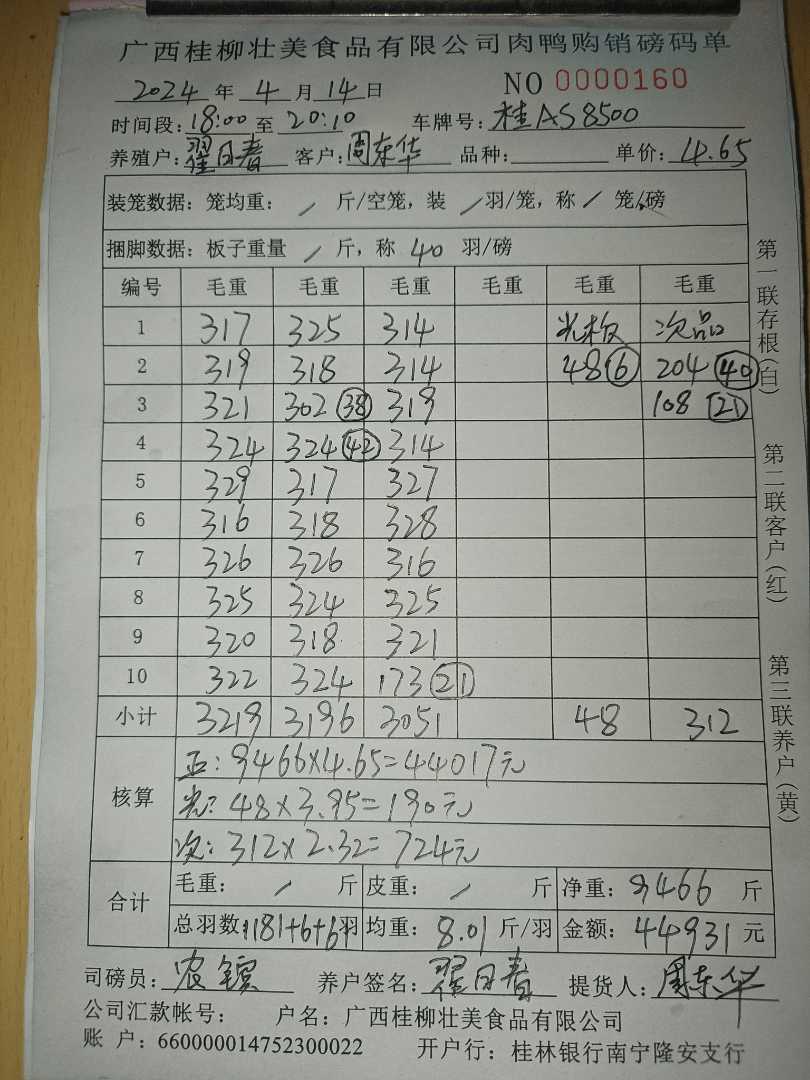 广西桂柳壮美食品有限公司肉鸭购销磅码单
2024 年 4 月 14 日 NO 0000160
时间段: 18:00 至 20:10 车牌号: 桂AS8500
养殖户: 翟日春 客户: 周东华 品种: 单价: 4.65
装笼数据: 笼均重: / 斤/空笼, 装 / 羽/笼, 称 / 笼/磅
捆脚数据: 板子重量 / 斤, 称 40 羽/磅
编号 毛重 毛重 毛重 毛重 毛重 毛重
1 317 325 314 光板 次品
2 319 318 314 48 6 204 40
3 321 302 38 319 108 21
4 324 324 42 314
5 329 317 327
6 316 318 328
7 326 326 316
8 325 324 325
9 320 318 321
10 322 324 173 21
小计 3219 3196 3051 48 312
核算
正: 9466×4.65=44017元
光: 48×3.95=190元
次: 312×2.32=724元
合计
毛重: / 斤 皮重: / 斤 净重: 9466 斤
总羽数: 1181+6+61羽 均重: 8.01 斤/羽 金额: 44931 元
司磅员: 农 养户签名: 翟日春 提货人: 周东华
公司汇款帐号: 户名: 广西桂柳壮美食品有限公司
账 户: 660000014752300022 开户行: 桂林银行南宁隆安支行
第一联存根(白)
第二联客户(红)
第三联养户(黄)